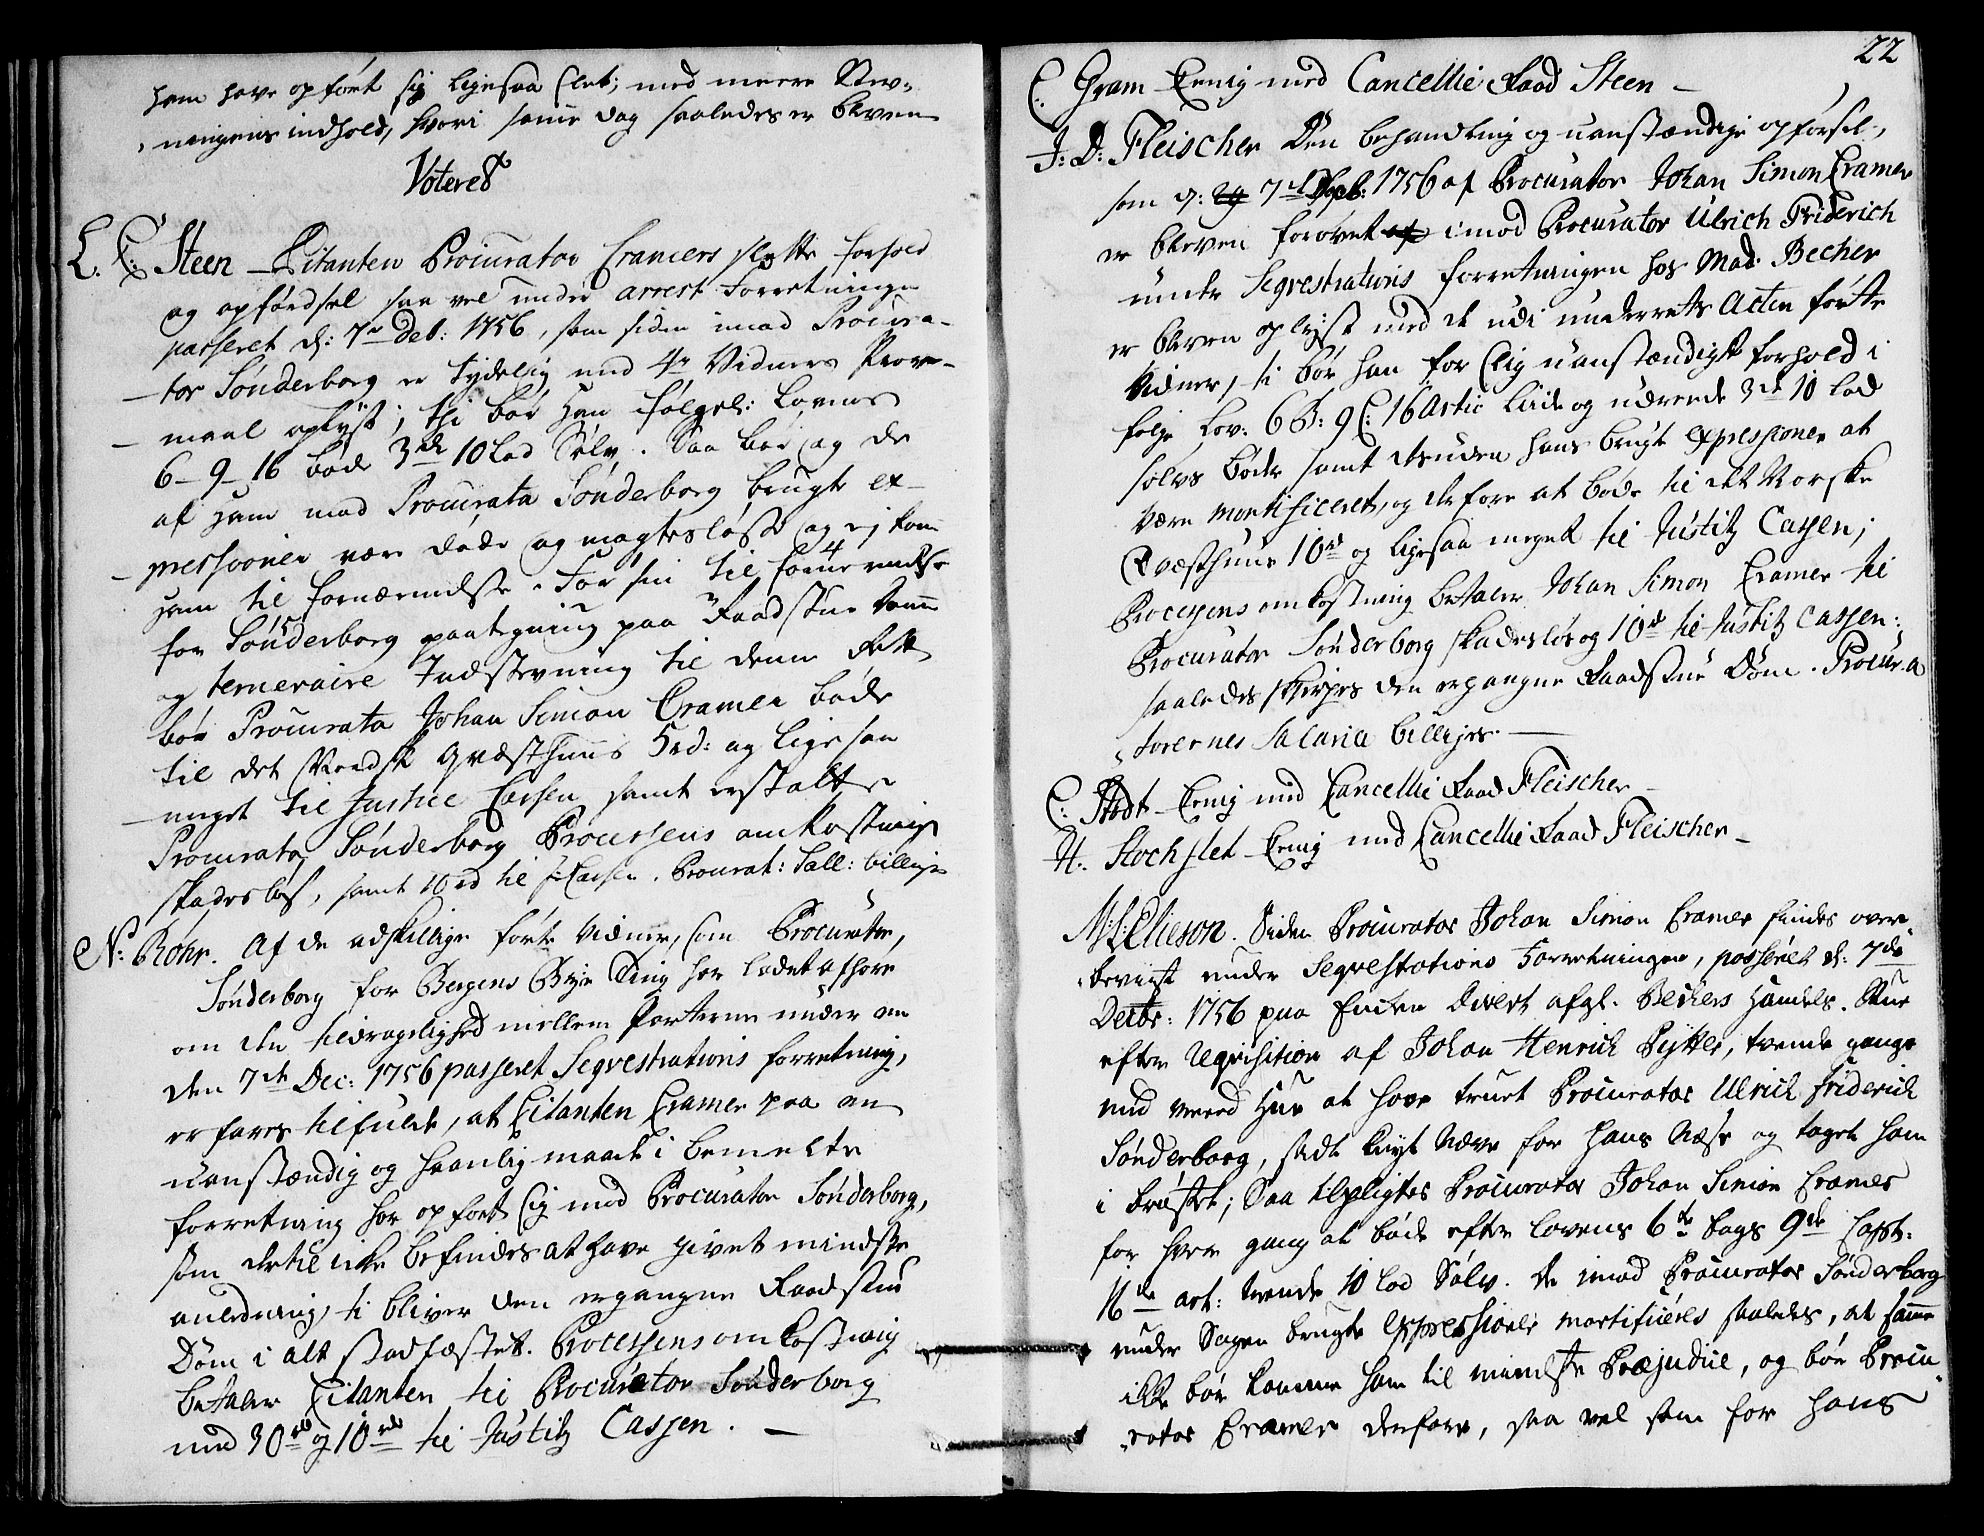 ham have opført sig ligesaa slet; med meere Stev-
ningens indhold, hvori samme dag saaledes er bleven
Votered
L. C: Steen Citanten Procurator Cramers slette forhold
og opførdsel saa vel under arrest Forretningen
passeret d: 7de Deb: 1756, som siden imod Procura-
tor Sønderborg er tydelig med 4re Vidners Prove-
maal oplyst; thi bør Han følgel: Lovens
6-9-16 bøde 3de 10 Lod Sølv. Saa bør og de
af ham mod Procurator Sønderborg brugte ex-
pressioner være døde og magtesløse og ej kom
ham til fornærmelse. For sin til fornærmelse
for Sønderborg paategning paa Raadstue Dom
og temeraire Indstevning til denne Rett
bør Procurator Johan Simon Cramer bøde
til det Nordske Qvæsthuus 5 rd: og lige saa
meget til Justice Cassen samt erstatte
Procurator Sønderborg Processens omkostning
skadesløs, samt 10 rd til J: Cassen. Procurat: Sall: billiges
N: Røhr. Af de adskillige førte Vidner, som Procurator
Sønderborg for Bergens Bye Ting har ladet afhøre
om den tildragelighed mellem Parterne under en
den 7de Dec: 1756 passeret Seqvestrations forretning,
erfares tilfulde, at Citanten Cramer paa en
uanstændig og haanlig maade i bemelte
forretning har opført sig mod Procurator Sønderborg,
som dertil icke befindes at have givet mindste
anledning, ti bliver den ergangne Raadstue
Dom i alt stadfæstet. Processens omkostning
betaler Citanten til Procurator Sønderborg
med 30 rd og 10 rd til Justitz Cassen.
22
C: Gram Eenig med Cancellie Raad Steen
J: D: Fleischer Den behandling og uanstændige opførsel,
som d: 29 7de Dec: 1756 af Procurator Johan Simon Cramer
er bleven forøvet af imod Procurator Ulrich Friderich
under Seqvestrations forretningen hos Mad: Becher
er bleven oplyst med de udi underrets Acten førte
Vidner, ti bør han for slig uanstændigt forhold i
følge Lov: 6 B: 9 C: 16 Artic lide og udreede 3de 10 lod
sølvs bøder samt desuden hans brugte expressioner at
være mortificeret, og derfore at bøde til det Norske
Qvæsthuus 10 rd og ligesaa meget til Justitz Cassen;
Processens omkostning betaler Johan Simon Cramer til
Procurator Sønderborg skadesløs og 10 rd til Justitz Cassen:
saaledes skierpes den ergangne Raadstue Dom. Procura
torernes Salaria billiges.
C: Stodt Eenig med Cancellie Raad Fleischer
H. Stochflet Eenig med Cancellie Raad Fleischer
M: L: Elieson. Siden Procurator Johan Simon Cramer findes over-
beviist under Seqvestrations Forretningen, passeret d: 7de
Decbr: 1756 paa Enken Sivert afgl. Bechers Handels. Stue
efter Reqvisition af Johan Henrich Pytter, trende gange
med vreed Hue at have truet Procurator Ulrich Friderich
Sønderborg, sadt knyt Næve for hans Næse og taget ham
i brøstet; Saa tilpligtes Procurator Johan Simon Cramer
for hver gang at bøde efter lovens 6te bogs 9de Capt:
16de art: trende 10 lod Sølv. De imod Procurator Sønderborg
under Sagen brugte Expressioner mortificeres saaledes, at samme
ikke bør komme ham til mindste Præjudice, og bør Procu-
rator Cramer derfore, saa vel som for hans